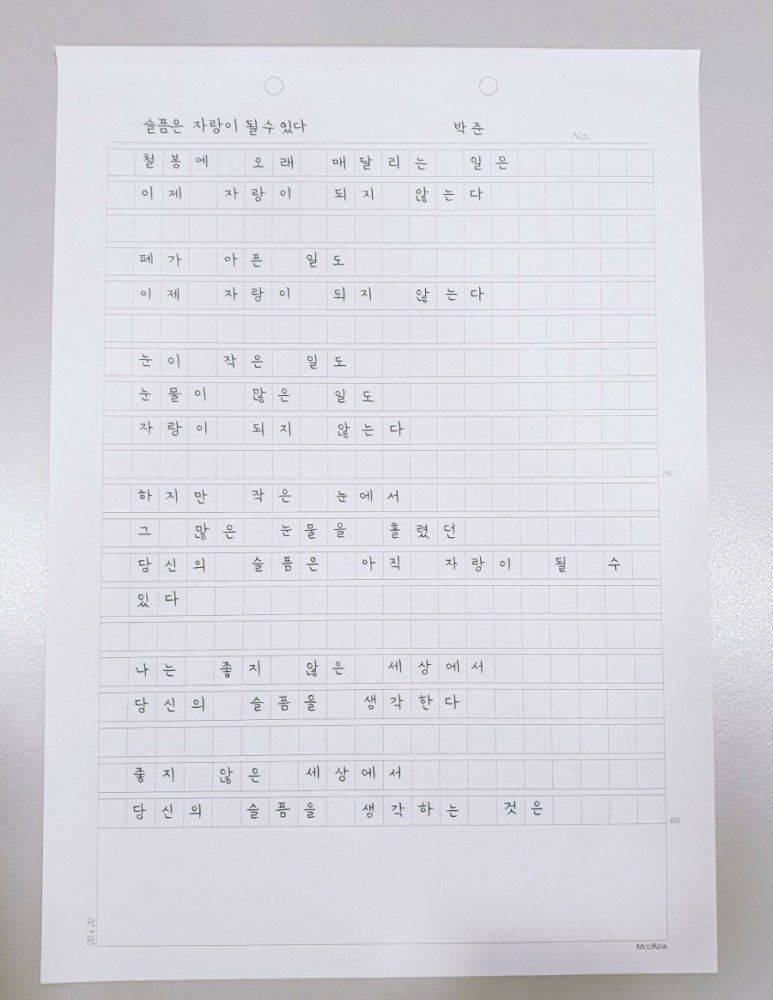 슬픔은 자랑이 될 수 있다 박준
No.
철봉에 오래 매달리는 일은
이제 자랑이 되지 않는다
폐가 아픈 일도
이제 자랑이 되지 않는다
눈이 작은 일도
눈물이 많은 일도
자랑이 되지 않는다
200
하지만 작은 눈에서
그 많은 눈물을 흘렸던
당신의 슬픔은 아직 자랑이 될 수
있다
나는 좋지 않은 세상에서
당신의 슬픔을 생각한다
좋지 않은 세상에서
당신의 슬픔을 생각하는 것은
400
20 x 20
MooKuK